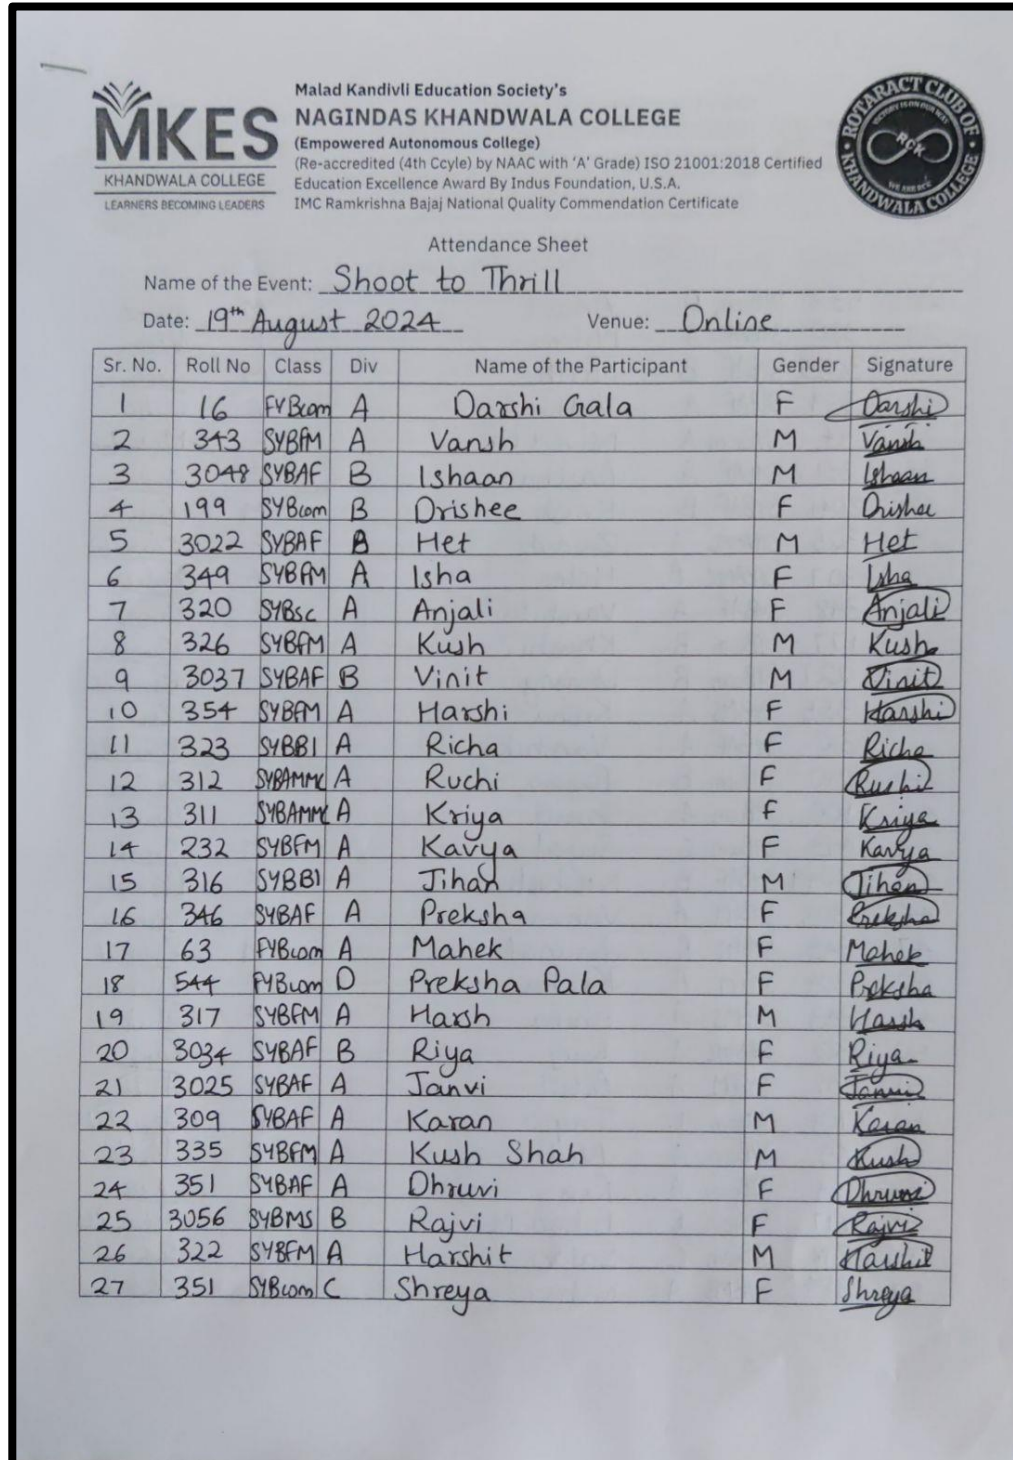 MKES
KHANDWALA COLLEGE
LEARNERS BECOMING LEADERS
Malad Kandivli Education Society's
NAGINDAS KHANDWALA COLLEGE
(Empowered Autonomous College)
(Re-accredited (4th Ccyle) by NAAC with 'A' Grade) ISO 21001:2018 Certified
Education Excellence Award By Indus Foundation, U.S.A.
IMC Ramkrishna Bajaj National Quality Commendation Certificate
ROTARACT CLUB OF
KHANDWALA COLLEGE
RCK
WE ARE RCK
Attendance Sheet
Name of the Event: Shoot to Thrill
Date: 19th August 2024 Venue: Online
Sr. No. Roll No Class Div Name of the Participant Gender Signature
1 16 FYBcom A Darshi Gala F Darshi
2 343 SYBFM A Vansh M Vansh
3 3048 SYBAF B Ishaan M Ishaan
4 199 SYBcom B Drishee F Drishee
5 3022 SYBAF B Het M Het
6 349 SYBFM A Isha F Isha
7 320 SYBsc A Anjali F Anjali
8 326 SYBFM A Kush M Kush
9 3037 SYBAF B Vinit M Vinit
10 354 SYBFM A Harshi F Harshi
11 323 SYBBI A Richa F Richa
12 312 SYBAMMC A Ruchi F Ruchi
13 311 SYBAMMC A Kriya F Kriya
14 232 SYBFM A Kavya F Kavya
15 316 SYBBI A Jihan M Jihan
16 346 SYBAF A Preksha F Preksha
17 63 FYBcom A Mahek F Mahek
18 544 FYBcom D Preksha Pala F Preksha
19 317 SYBFM A Harsh M Harsh
20 3034 SYBAF B Riya F Riya
21 3025 SYBAF A Janvi F Janvi
22 309 SYBAF A Karan M Karan
23 335 SYBFM A Kush Shah M Kush
24 351 SYBAF A Dhruvi F Dhruvi
25 3056 SYBMS B Rajvi F Rajvi
26 322 SYBFM A Harshit M Harshit
27 351 SYBcom C Shreya F Shreya